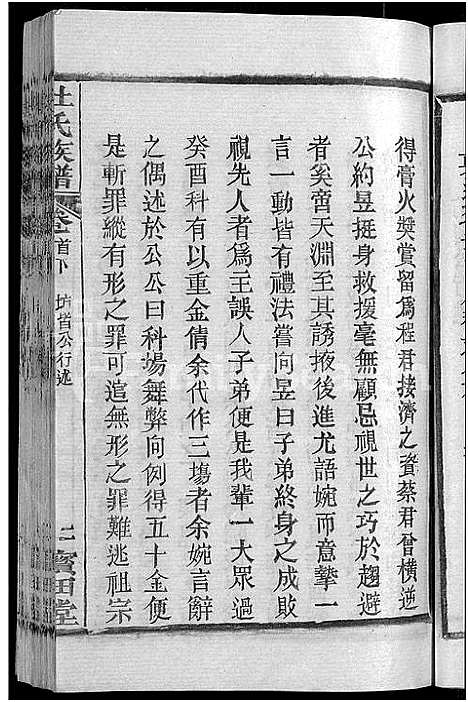 得膏火獎賞留爲程君接濟之資蔡君曾橫逆
公約昱挺身救援毫無顧忌視世之巧於趨避
者奚啻天淵至其誘掖後進尤語婉而意摯一
言一動皆有禮法嘗向昱曰子弟終身之成敗
視先人者爲王誤人子弟便是我輩一大眾過
癸酉科有以重金倩余代作三塲者余婉言辭
之偶述於公公曰科場舞弊向例得五十金便
是斬罪縱有形之罪可逭無形之罪難逃祖宗
杜氏族譜
卷首下
公行述
二
堂